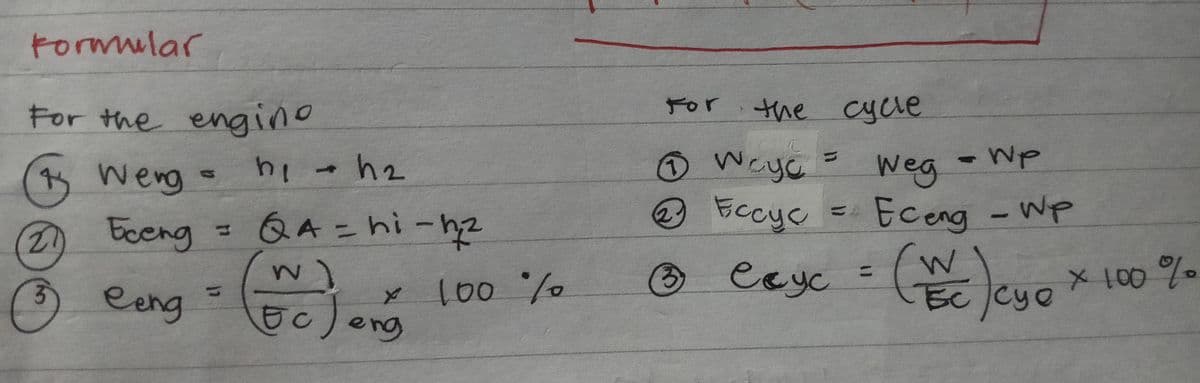 Formular
For the engine
① Weng = h1 - h2
② Eceng = QA = hi - hf2
③ eeng = (W/EC)eng × 100 %
For the cycle
① Wcyc = Weg - Wp
② Eccyc = Eceng - Wp
③ ecyc = (W/EC)cyc × 100 %